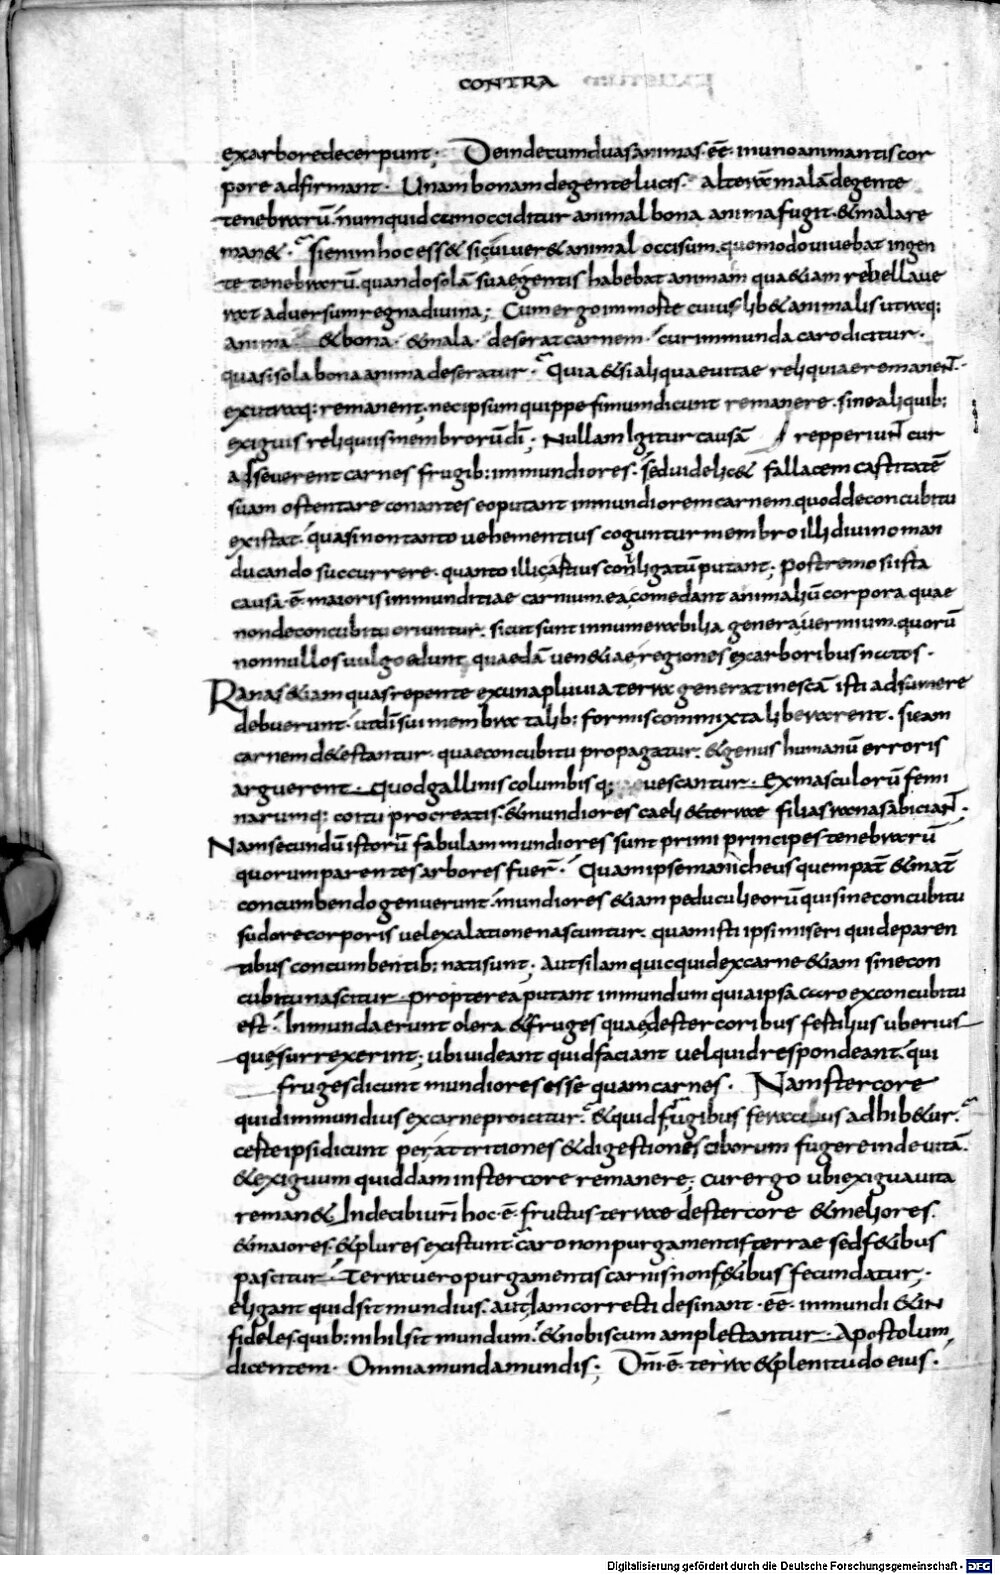 CONTRA
ex arbore decerpunt; Deinde cum duas animas · eē · in uno animantis cor
pore adfirmant · Unam bonam de gente lucis · alterā malā de gente
tenebrarū · numquid cum occiditur animal bona anima fugit · & mala re
man& · si enim hoc ess& sic viver& animal occisum · quomodo vivebat in gen
te tenebrarū · quando solā suae gentis habebat animam qua &iam rebellave
rat adversum regna divina; Cum ergo in morte cuiuslib& animalis utraq:
anima & bona · & mala · deserat carnem · cur inmunda caro dicitur ·
quasi sola bona anima deseratur · Quia & si aliquae vitae reliquiae remaneÑ ·
ex utraq: remanent · nec ipsum quippe fimum dicunt remanere · sine aliquib:
exiguis reliquiis membrorū dī · Nullam Igitur causā repperiuÑ cur
adseverent carnes frugib: inmundiores · sed videlic& fallacem castitatē
suam ostentare conantes eo putant inmundiorem carnem quod de concubitu
existat · quasi non tanto vehementius coguntur membro illi divino man
ducando succurrere · quanto illic artius conligatū putant; postremo si ista
causa · ē · maioris inmunditiae carnium · ea comedant animaliū corpora quae
non de concubitu oriuntur · sicut sunt innumerabilia genera vermium · quorū
nonnullos vulgo edunt quaedā ven&iae regiones ex arboribus natos ·
Ranas &iam quas repente ex una pluvia terra generat in escā isti adsumere
debuerunt · ut dī sui membra talib: formis commixta liberarent · si eam
carnem d&estantur · quae concubitu propagatur · & genus humanū erroris
arguerent · quod gallinis columbisq; vescantur · Ex masculorū femi
narumq: coitu procreatis · & mundiores caeli & terrae filias ranas abiciaÑ ·
Nam secundū istorū fabulam mundiores sunt primi principes tenebrarū
quorum parentes arbores fuer̄ · Quam ipse manicheus quem pat̄ & mat̄
concumbendo genuerunt · mundiores &iam peduculi eorū qui sine concubitu
sudore corporis vel exalatione nascuntur · quam isti ipsi miseri qui de paren
tibus concumbentib: nati sunt; Aut si iam quicquid ex carne &iam sine con
cubitu nascitur · propterea putant inmundum quia ipsa caro ex concubitu
est · Inmunda erunt olera & fruges quae de stercoribus festilius uberius
que surrexerint; ubi videant quid faciant vel quid respondeant · qui
fruges dicunt mundiores esse quam carnes · Nam stercore
quid inmundius ex carne proicitur · & quid frugibus feracibus adhib&ur ·
certe ipsi dicunt per attritiones & digestiones ciborum fugere inde vitā ·
& exiguum quiddam in stercore remanere; cur ergo ubi exigua vita
reman& Inde cib i uri hoc · ē · fructus terrae de stercore & meliores ·
& maiores · & plures existunt · caro non purgamentis terrae sed f&ibus
pascitur · Terra vero purgamentis carnis non f&ibus fecundatur; ·
eligant quid sit mundius · aut Iam correcti desinant · eē · inmundi & in
fideles quib: nihil sit mundum · & nobiscum amplectantur · Apostolum
dicentem · Omnia munda mundis; Dn̄i · ē · terra & plenitudo eius ·
Digitalisierung gefördert durch die Deutsche Forschungsgemeinschaft - DFG